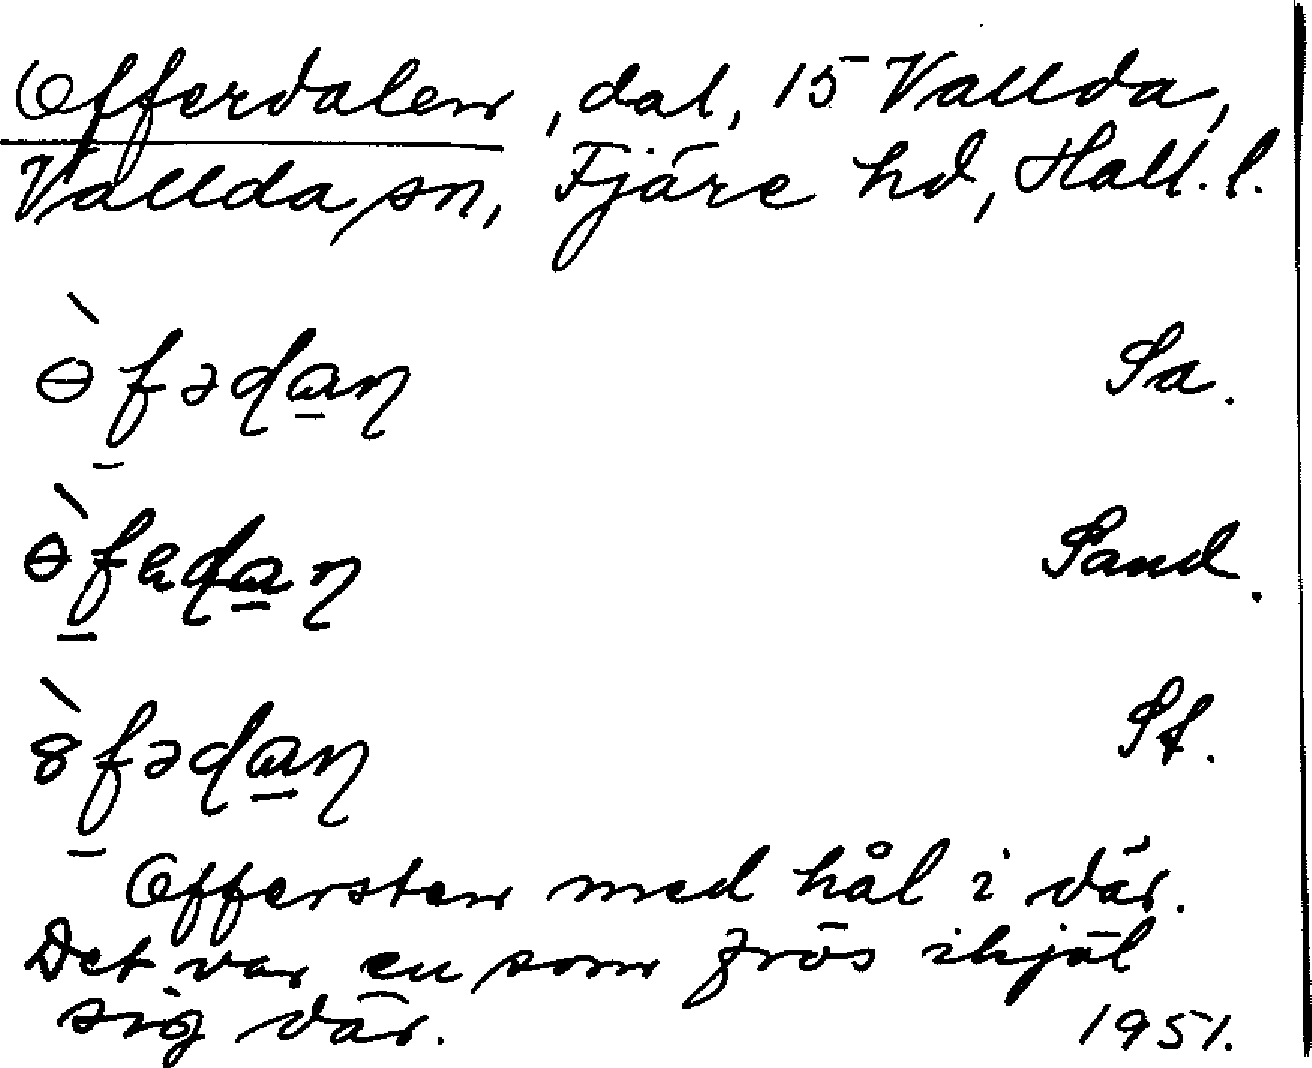 Offerdalen, dal, 15 Vallda,
Vallda sn, Fjäre hd, Hall. l.
ɵ̀fədaɳ Sa.
Sand.
St.
Offersten med hål i där.
Det var en som frös ihjäl
sig där. 1951.